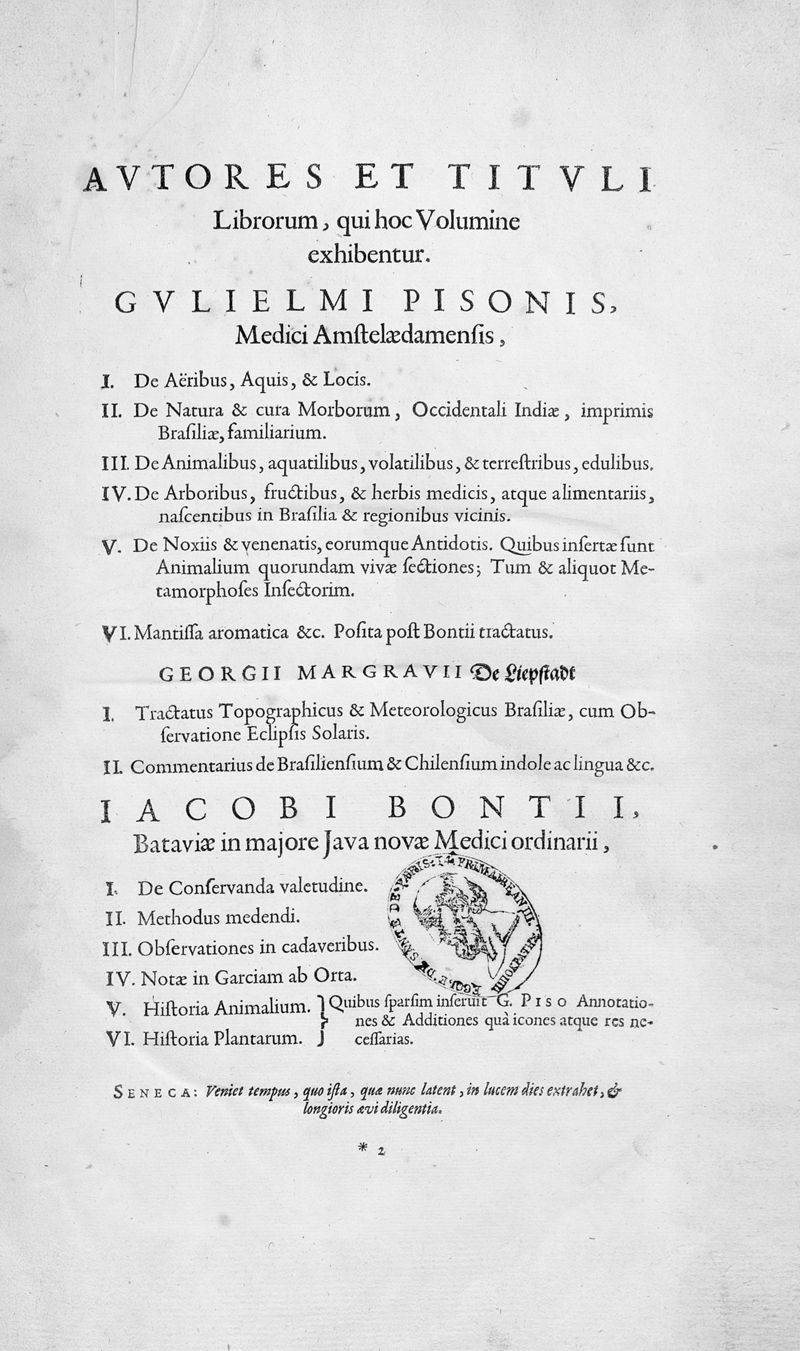 AVTORES ET TITVLI
Librorum, qui hoc Volumine
exhibentur.
GVLIELMI PISONIS,
Medici Amſtelædamenſis,
I. De Aëribus, Aquis, & Locis.
II. De Natura & cura Morborum, Occidentali Indiæ, imprimis
Braſiliæ, familiarium.
III. De Animalibus, aquatilibus, volatilibus, & terreſtribus, edulibus.
IV. De Arboribus, fructibus, & herbis medicis, atque alimentariis,
naſcentibus in Braſilia & regionibus vicinis.
V. De Noxiis & venenatis, eorumque Antidotis. Quibus inſertæ ſunt
Animalium quorundam vivæ ſectiones; Tum & aliquot Me-
tamorphoſes Inſectorim.
VI. Mantiſſa aromatica &c. Poſita poſt Bontii tractatus.
GEORGII MARGRAVII De Liepſtadt
I. Tractatus Topographicus & Meteorologicus Braſiliæ, cum Ob-
ſervatione Eclipſis Solaris.
II. Commentarius de Braſilienſium & Chilenſium indole ac lingua &c.
IACOBI BONTII,
Bataviæ in majore Java novæ Medici ordinarii,
I. De Conſervanda valetudine.
II. Methodus medendi.
III. Obſervationes in cadaveribus.
IV. Notæ in Garciam ab Orta.
V. Hiſtoria Animalium. } Quibus ſparſim inſeruit G. PISO Annotatio-
nes & Additiones quà icones atque res ne-
VI. Hiſtoria Plantarum. ceſſarias.
SENECA: Veniet tempus, quo iſta, quæ nunc latent, in lucem dies extrahet, &
longioris ævi diligentia.
* 2